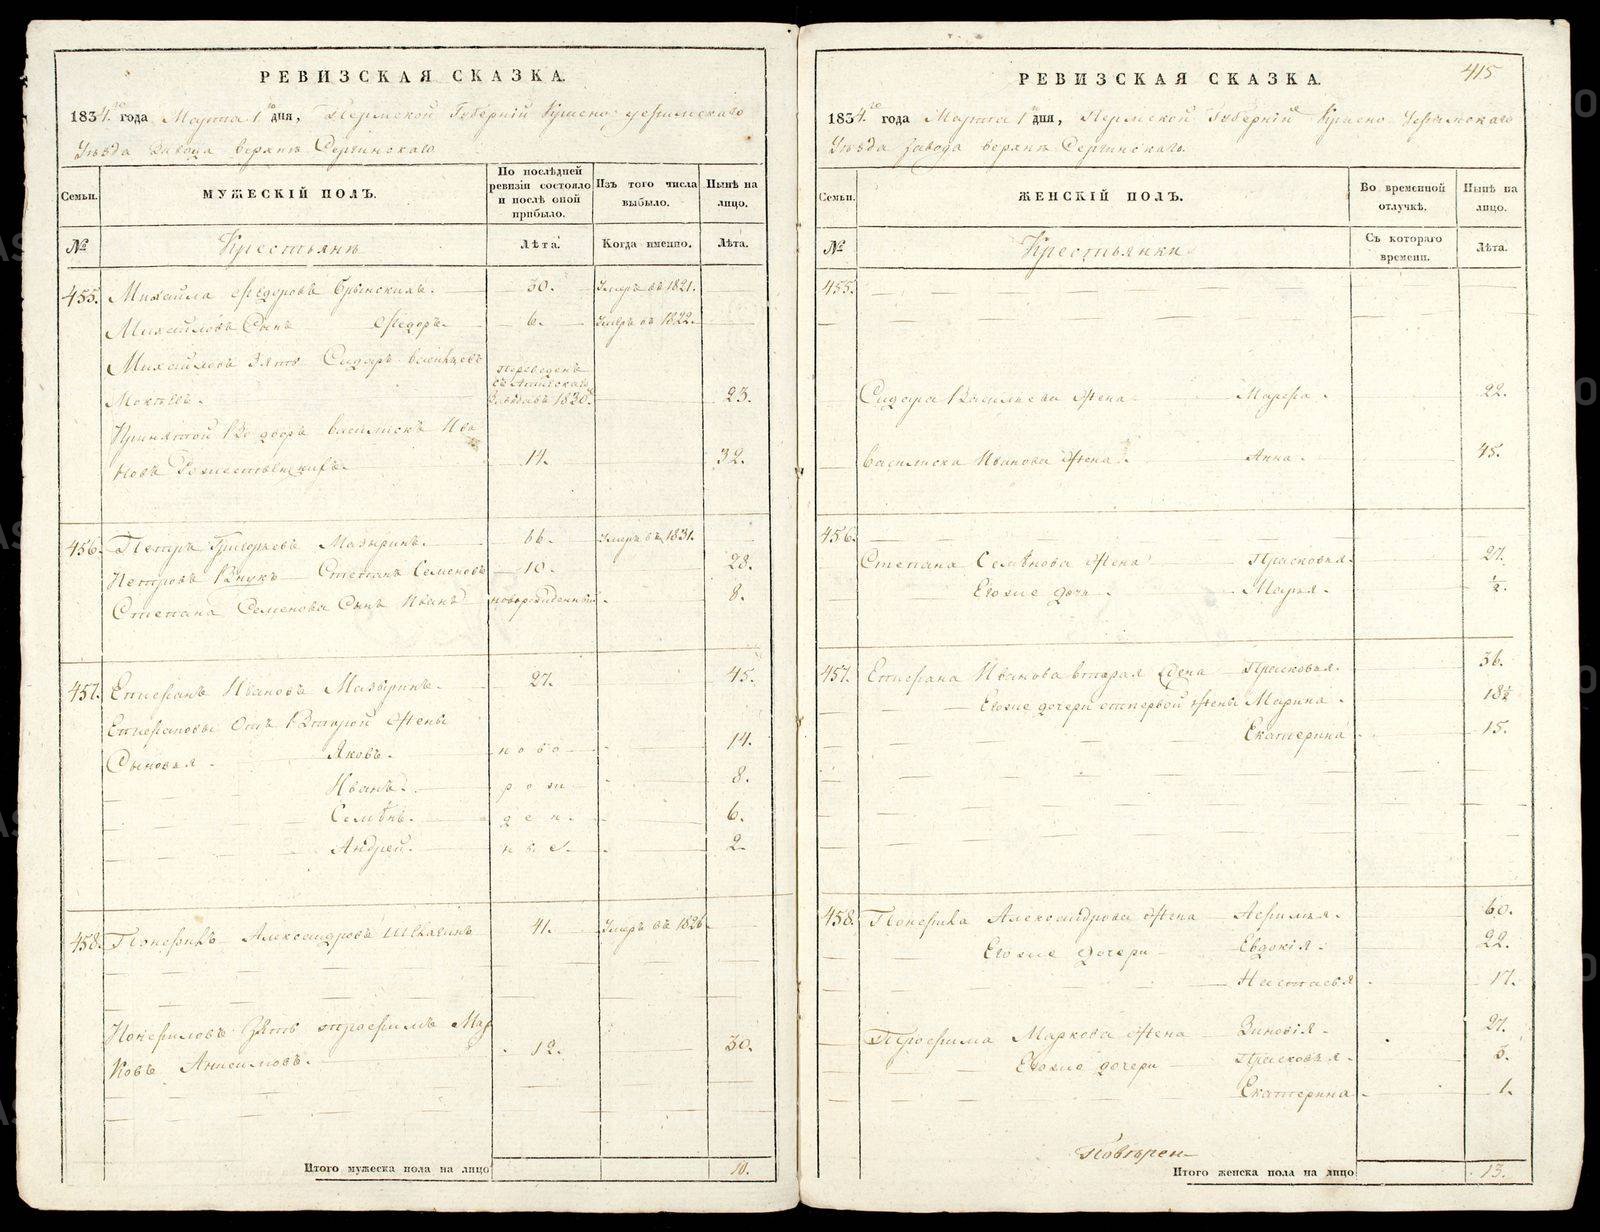 РЕВИЗСКАЯ СКАЗКА.
1834го года Марта 1го дня, Пермской Губерніи Красно-уфимскаго
Уѣзда завода верхнѣ Сергинскаго
Семьи.
МУЖЕСКІЙ ПОЛЪ.
По послѣдней ревизіи состояло и послѣ оной прибыло.
Изъ того числа выбыло.
Нынѣ на лицо.
№
Крестьянѣ
Лѣта.
Когда именно.
Лѣта.
455. Михайла Ѳедоровъ 30. Умеръ въ 1821.
Михайловъ Сынъ Ѳедоръ. 6. Умеръ въ 1822.
Михайловъ Зять Сидоръ Васильевъ
Мокѣевъ. переведенъ съ завода въ 1830. 23.
Принятой во дворъ василискъ Ива
новъ 14. 32.
456. Петръ Григорьевъ Мазыринъ. 66. Умеръ въ 1831.
Петровъ Внукъ Степанъ Семеновъ 10. 28.
Степана Семенова Сынъ Иванъ новорожденный. 8.
457. Епифанъ Ивановъ Мазыринъ. 27. 45.
Епифановы Отъ второй жены
Сыновья Яковъ. ново 14.
Иванъ. рож 8.
Семѣнъ. ден 6.
Андрей. ные. 2.
458. Александровъ 41. Умеръ въ 1826.
зять трофимъ Мар
ковъ Анисимовъ. 12. 30.
Итого мужеска пола на лицо 10.
415
РЕВИЗСКАЯ СКАЗКА.
1834го года Марта 1го дня, Пермской Губерніи Красно Уфимскаго
Уѣзда завода верхнѣ Сергинскаго.
Семьи.
ЖЕНСКІЙ ПОЛЪ.
Во временной отлучкѣ.
Нынѣ на лицо.
№
Крестьянки
Съ котораго времени.
Лѣта.
455.
Сидора Васильева жена Марфа. 22.
Василиска Иванова жена. Анна. 45.
456.
Степана Семѣнова жена Прасковья. 27.
Егоже дочь Марья. ½.
457. Епифана Иванова вторая жена Прасковья. 36.
Егоже дочери отпервой жены Марина. 18½
Екатерина 15.
458. Александрова жена Афимья. 60.
Егоже дочери Евдокія. 22.
Настасья 17.
Трофима Маркова жена Зиновія. 27.
Егоже дочери Прасковья. 3.
Екатерина 1.
Повѣрен
Итого женска пола на лицо 13.